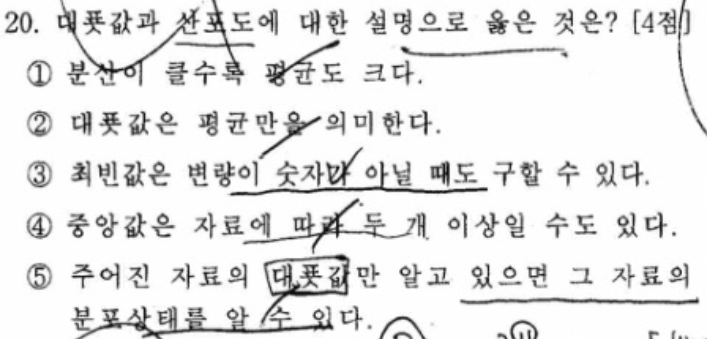 20. 대푯값과 산포도에 대한 설명으로 옳은 것은? [4점]
① 분산이 클수록 평균도 크다.
② 대푯값은 평균만을 의미한다.
③ 최빈값은 변량이 숫자가 아닐 때도 구할 수 있다.
④ 중앙값은 자료에 따라 두 개 이상일 수도 있다.
⑤ 주어진 자료의 대푯값만 알고 있으면 그 자료의
분포상태를 알 수 있다.